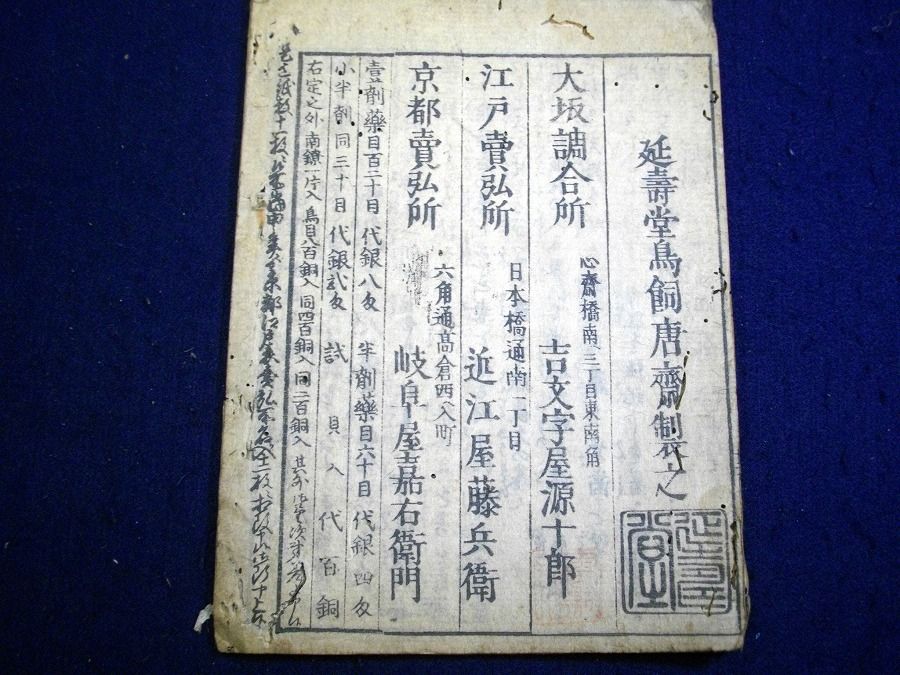 延壽堂鳥飼唐齋製之
延壽堂
大坂調合所
心齋橋南三丁目東南角
吉文字屋源十郎
江戸賣弘所
日本橋通南一丁目
近江屋藤兵衛
京都賣弘所
六角通高倉西入町
岐阜屋嘉右衛門
壹劑藥目百二十目 代銀八匁 半劑藥目六十目 代銀四匁
小半劑同三十目 代銀貳匁 試貝入代百銅
右定之外南鐐一片入 鳥目八百銅入 同四百銅入 同二百銅入